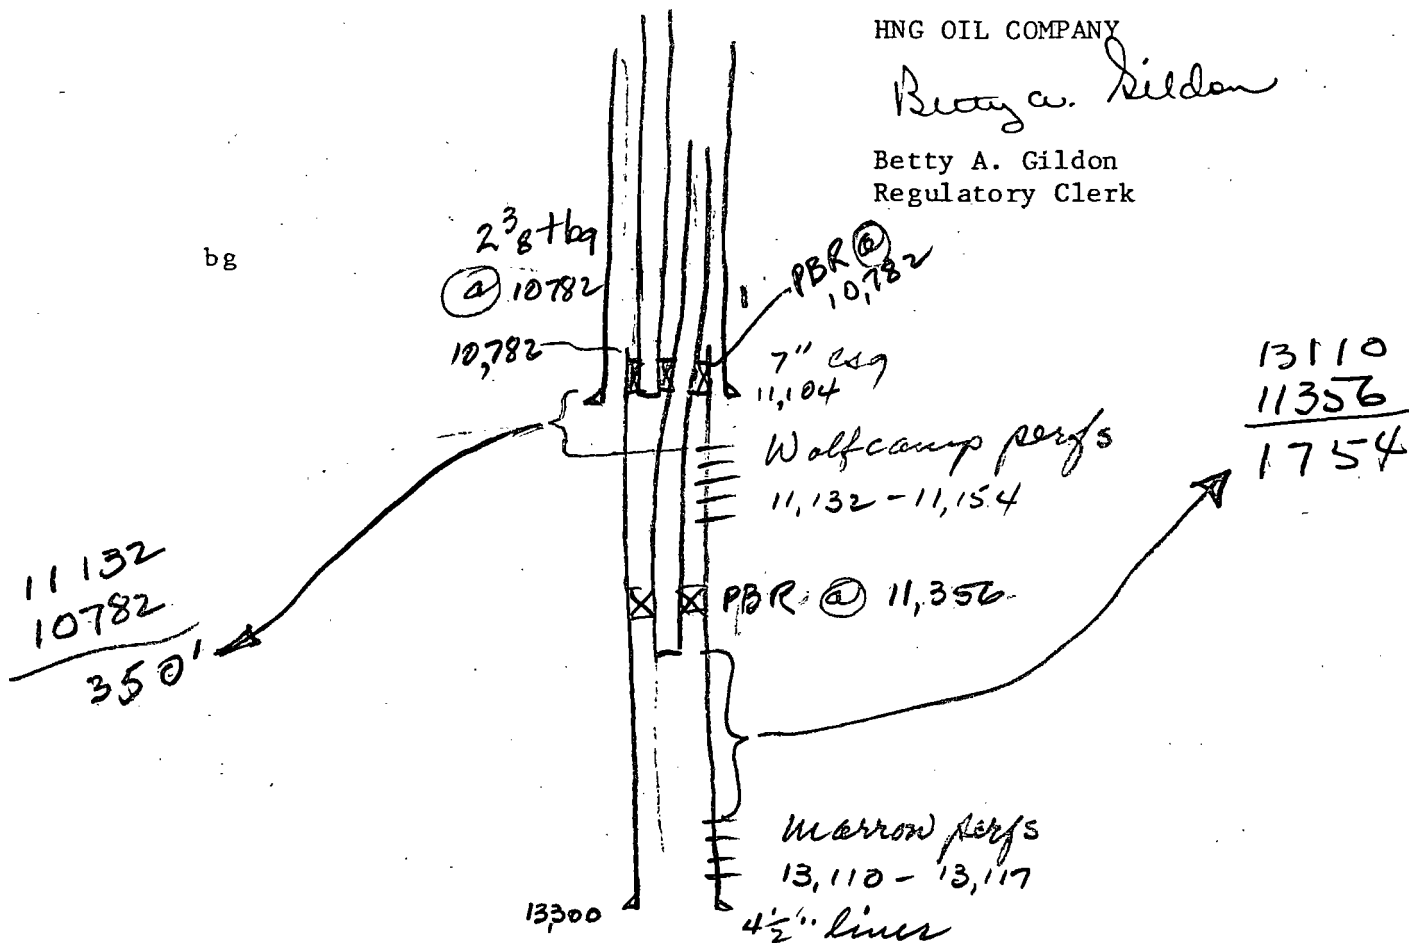 HNG OIL COMPANY
Betty A. Gildon
Betty A. Gildon
Regulatory Clerk
bg
2 3/8 tbg
@ 10782
PBR @
10,782
10,782
7" csg
11,104
Wolfcamp perfs
11,132 - 11,154
13110
11356
1754
11132
10782
350'
PBR @ 11,356
Morrow perfs
13,110 - 13,117
13,300
4 1/2" liner